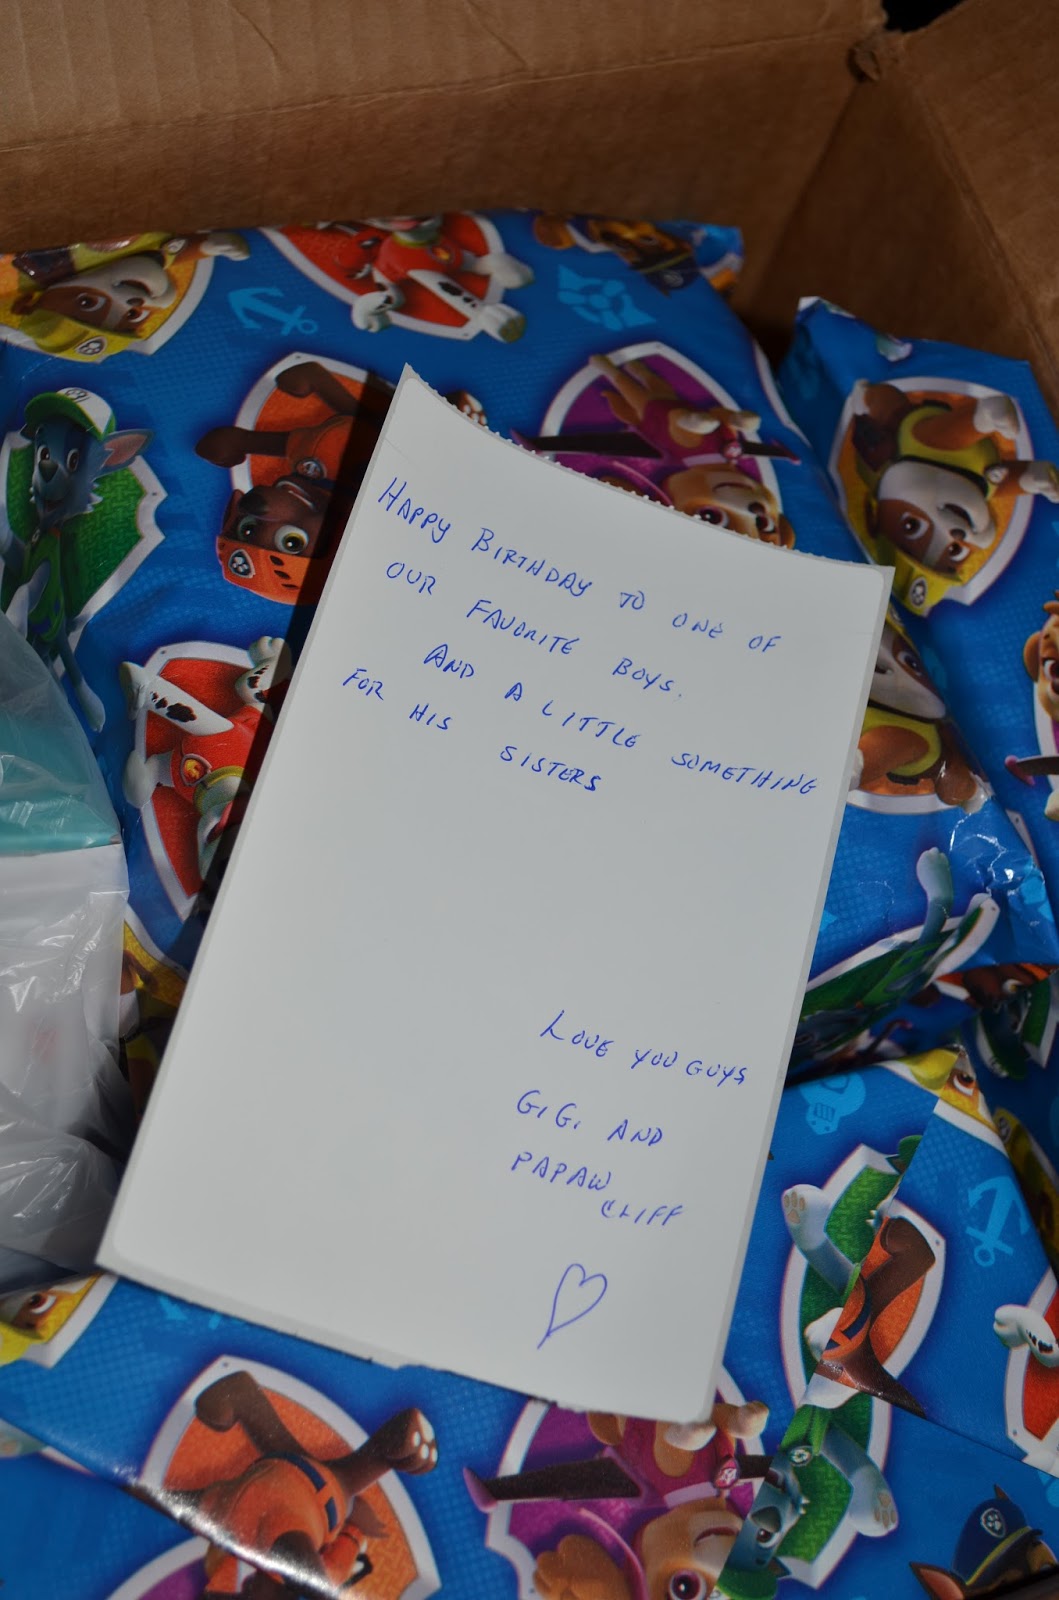 HAPPY BIRTHDAY TO ONE OF
OUR FAVORITE BOYS.
AND A LITTLE SOMETHING
FOR HIS SISTERS
LOVE YOU GUYS
GiGi AND
PAPAW
CLIFF